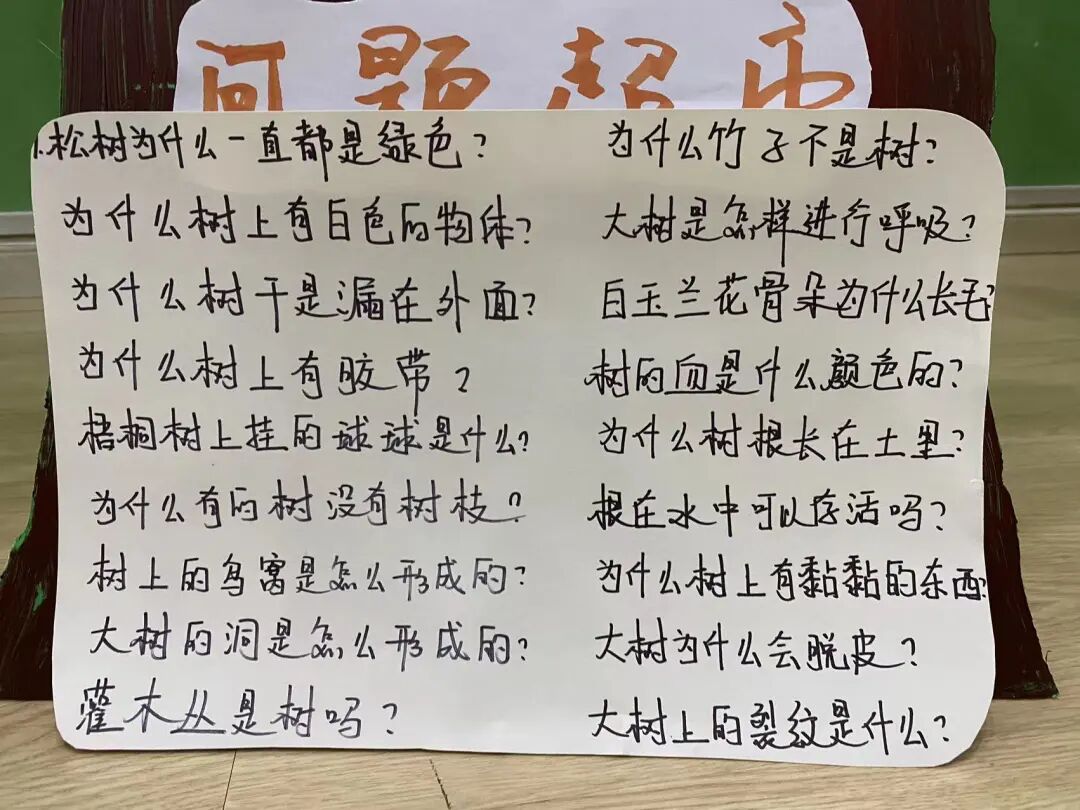 问题超市
松树为什么一直都是绿色?
为什么树上有白色的物体?
为什么树干是漏在外面?
为什么树上有胶带?
梧桐树上挂的球球是什么?
为什么有的树没有树枝?
树上的鸟窝是怎么形成的?
大树的洞是怎么形成的?
灌木丛是树吗?
为什么竹子不是树?
大树是怎样进行呼吸?
白玉兰花骨朵为什么长毛?
树的血是什么颜色的?
为什么树根长在土里?
根在水中可以存活吗?
为什么树上有黏黏的东西?
大树为什么会脱皮?
大树上的裂纹是什么?